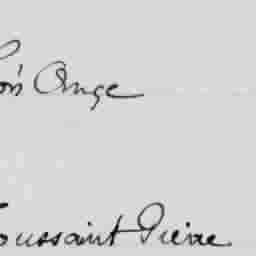 ois Ange
oussaint Pierre